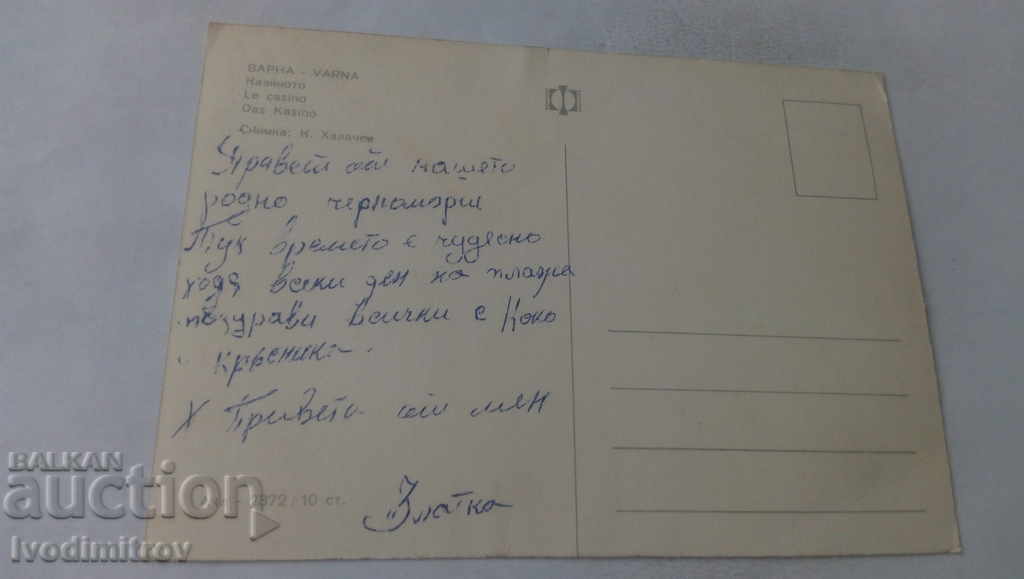 ВАРНА - VARNA
Казиното
Le casino
Das Kasino
Снимка: К. Халачев
Привет от нашето
родно черноморие
Тук времето е чудесно
ходя всеки ден на плажа
поздрави всички с Коко
Кръсника.
X Привета от мен
Златка
2872 10 ст.
BALKAN
auction
Ivodimitrov